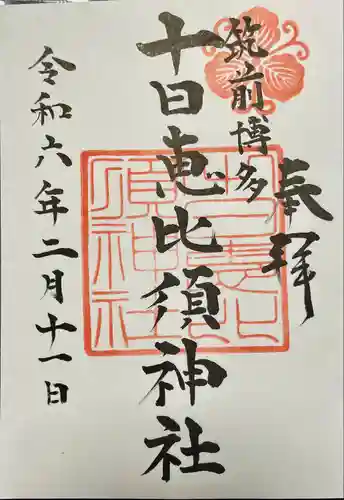 奉拝
筑前博多
十日恵比須神社
令和六年二月十一日
十日恵比須神社